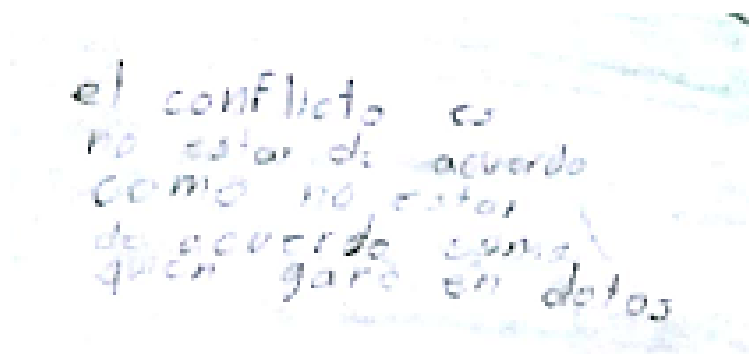 el conflicto es
no estar de acuerdo
como no estar
de acuerdo como
quien gano en